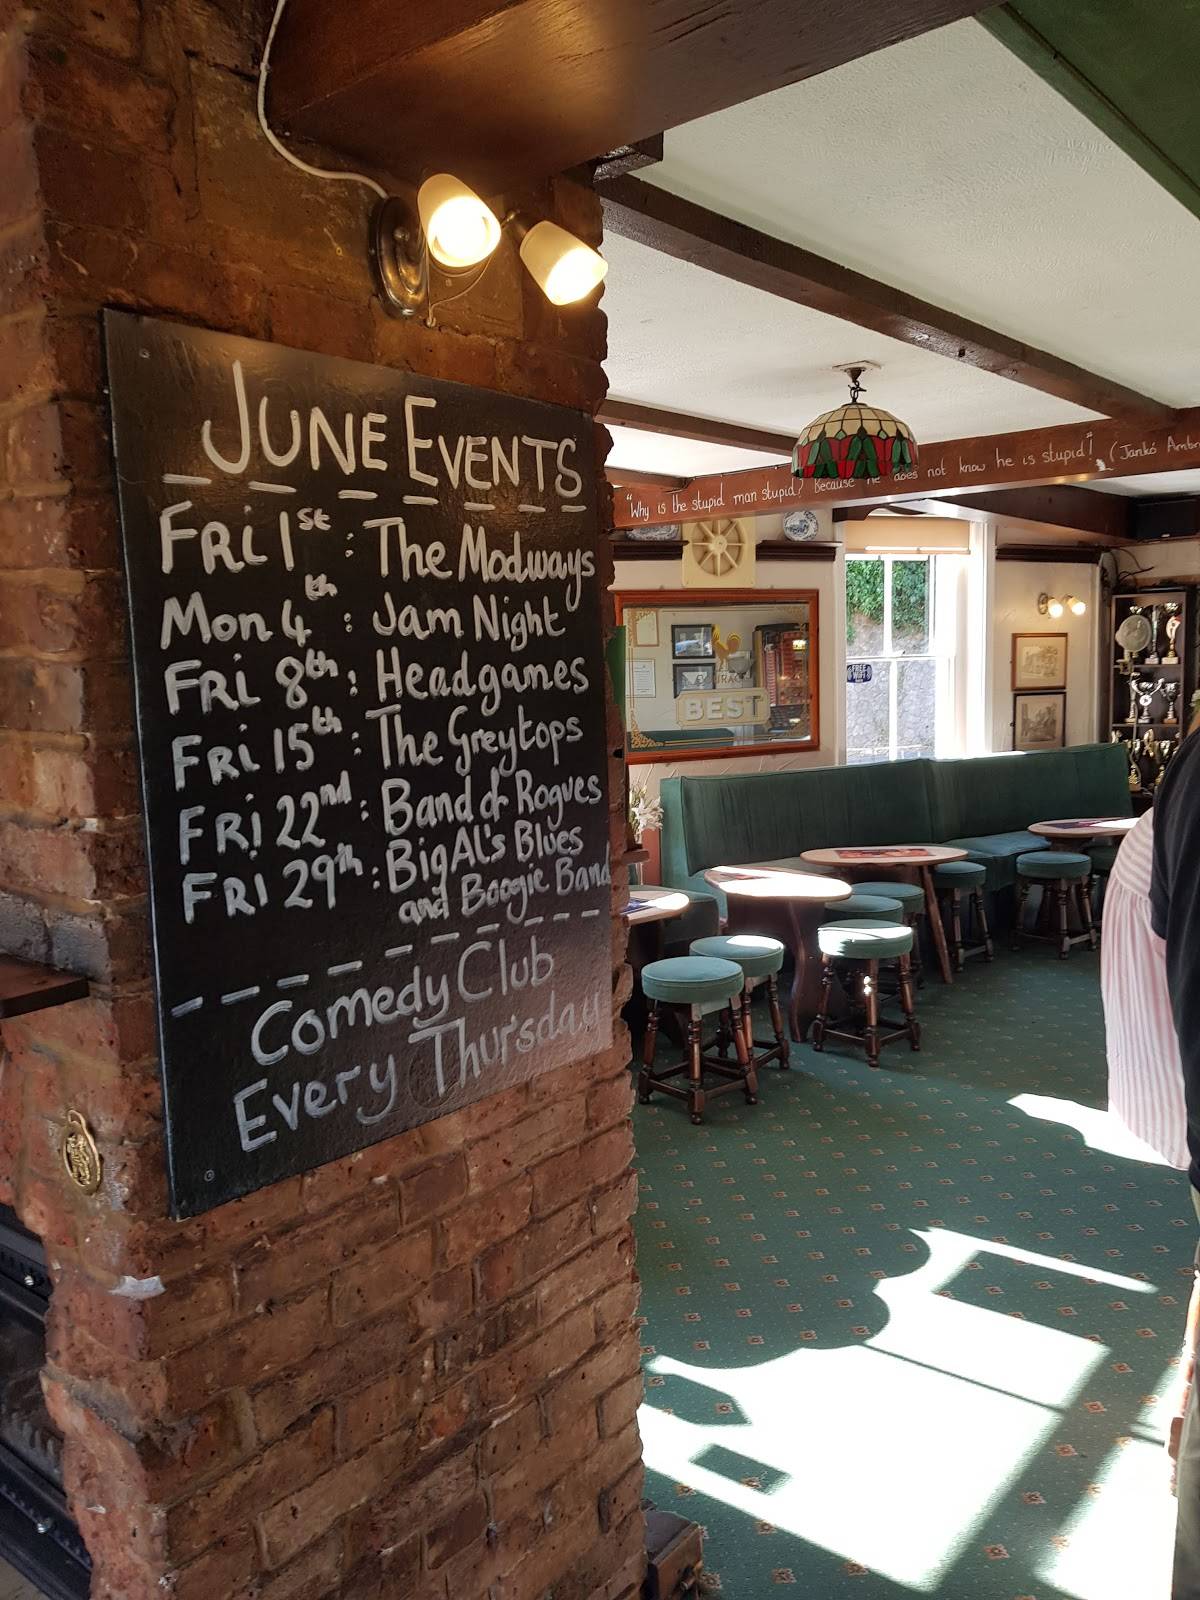 JUNE EVENTS
FRi 1st : The Modways
Mon 4th : Jam Night
FRi 8th : Headgames
FRi 15th : The Greytops
FRi 22nd : Band of Rogues
FRi 29th : Big Al's Blues
and Boogie Band
Comedy Club
Every Thursday
"Why is the stupid man stupid? Because he does not know he is stupid!" (Jankó
BEST
FREE
WiFi